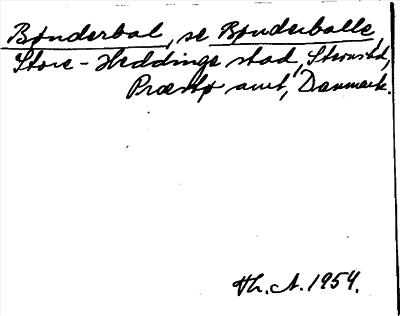 Bønderbal, se Bønderballe,
Store-Heddinge stad, Stevnshd,
Præstø amt, Danmark.
Th. A. 1954.